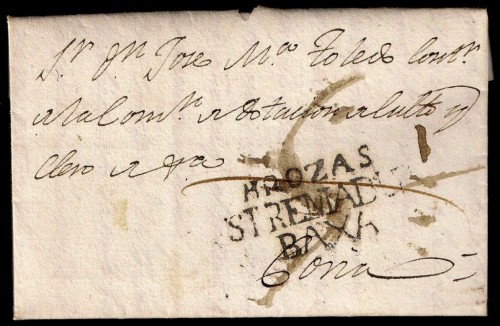 Sr. Dn. Jose Ma. Toledo Contr.
a la Comn. a dotacion a culto y
clero a
BROZAS
STREMADU
BAXA
Coria